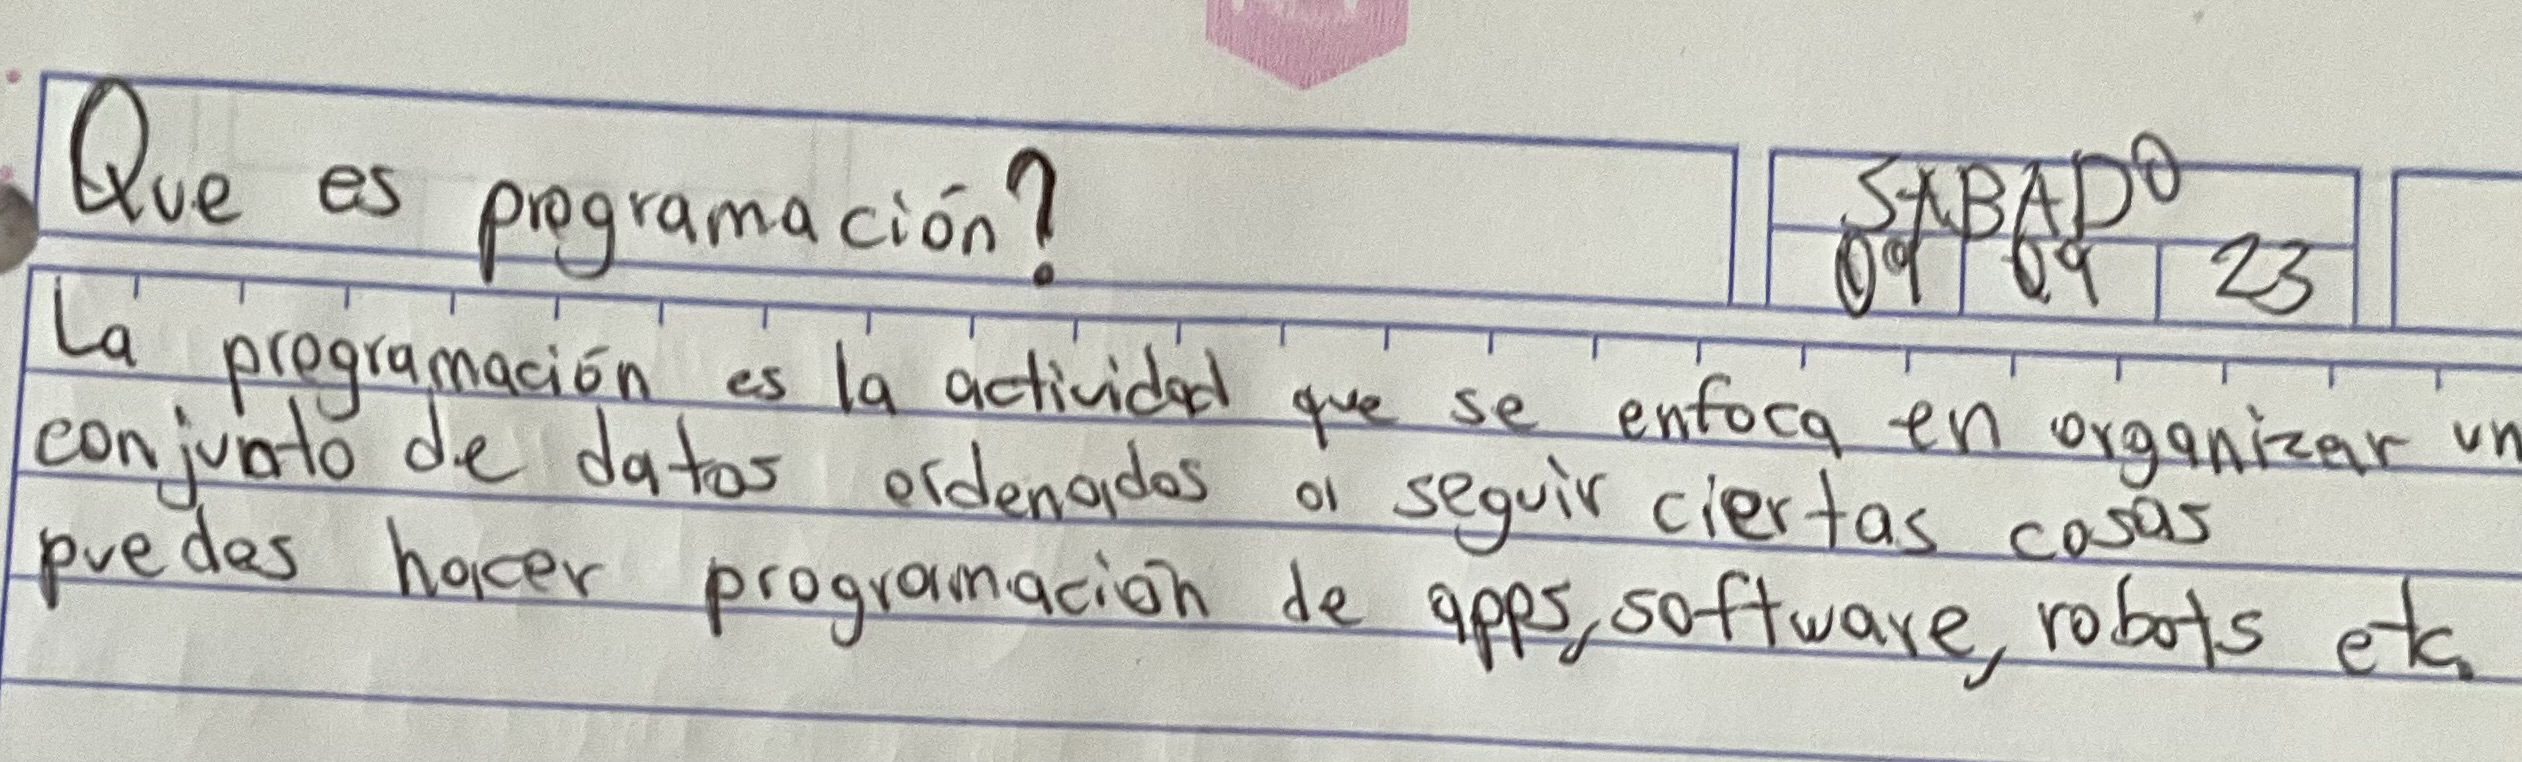 Que es programación?
SABADO
09 09 23
La programación es la actividad que se enfoca en organizar un
conjunto de datos ordenados a seguir ciertas cosas
puedes hacer programación de apps, software, robots etc.